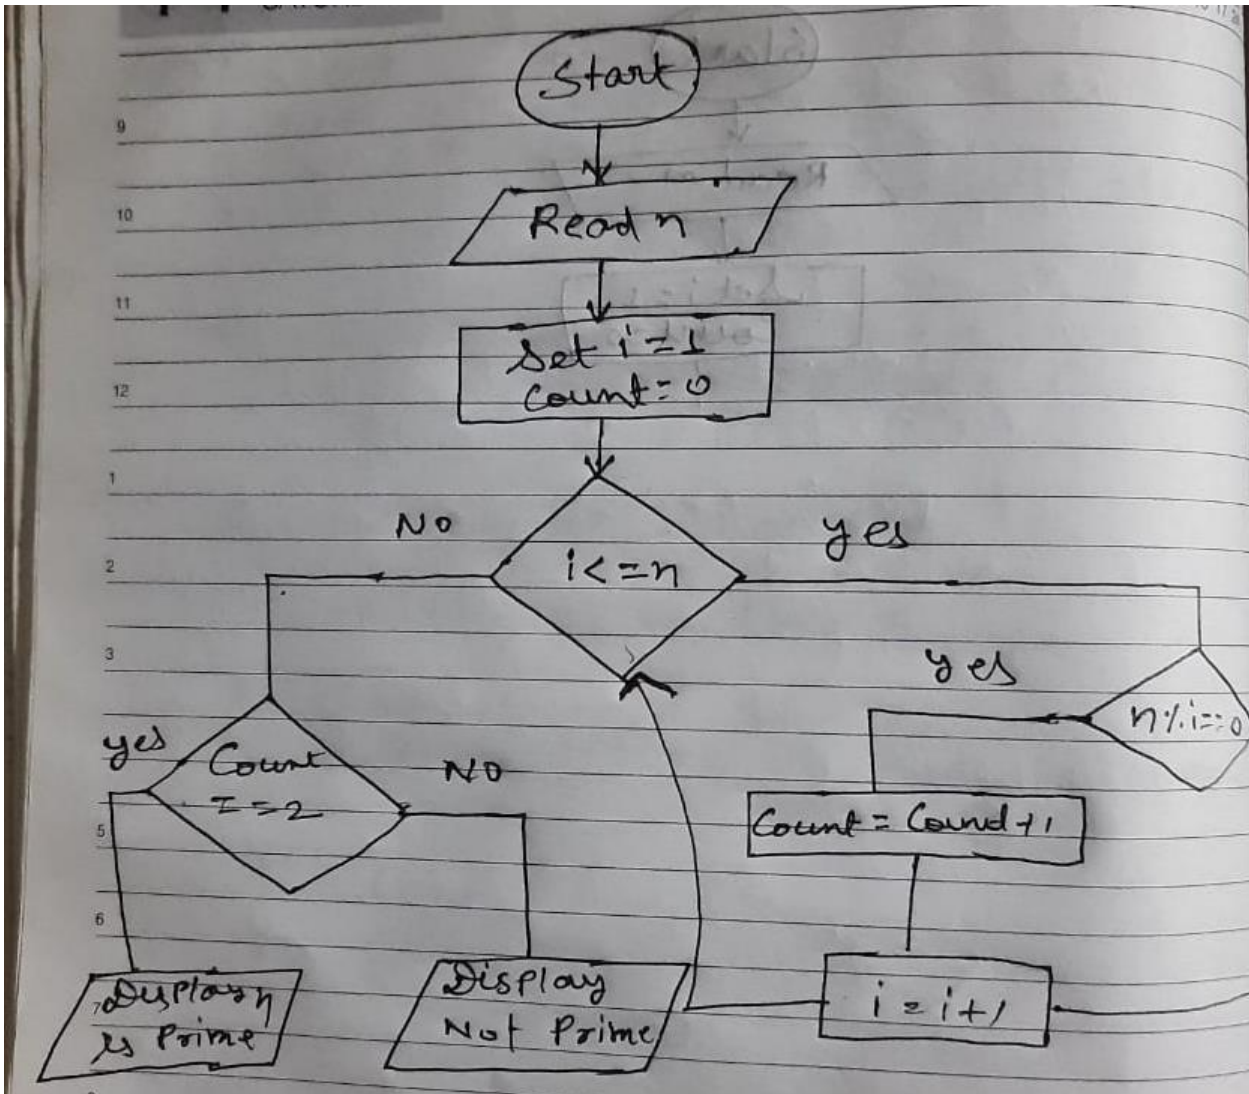 Start
9
10
Read n
11
Set i=1
Count=0
12
1
NO
yes
2
i<=n
3
yes
n%i==0
yes
Count
==2
NO
5
Count = Count+1
6
Display n
is Prime
Display
Not Prime
i=i+1